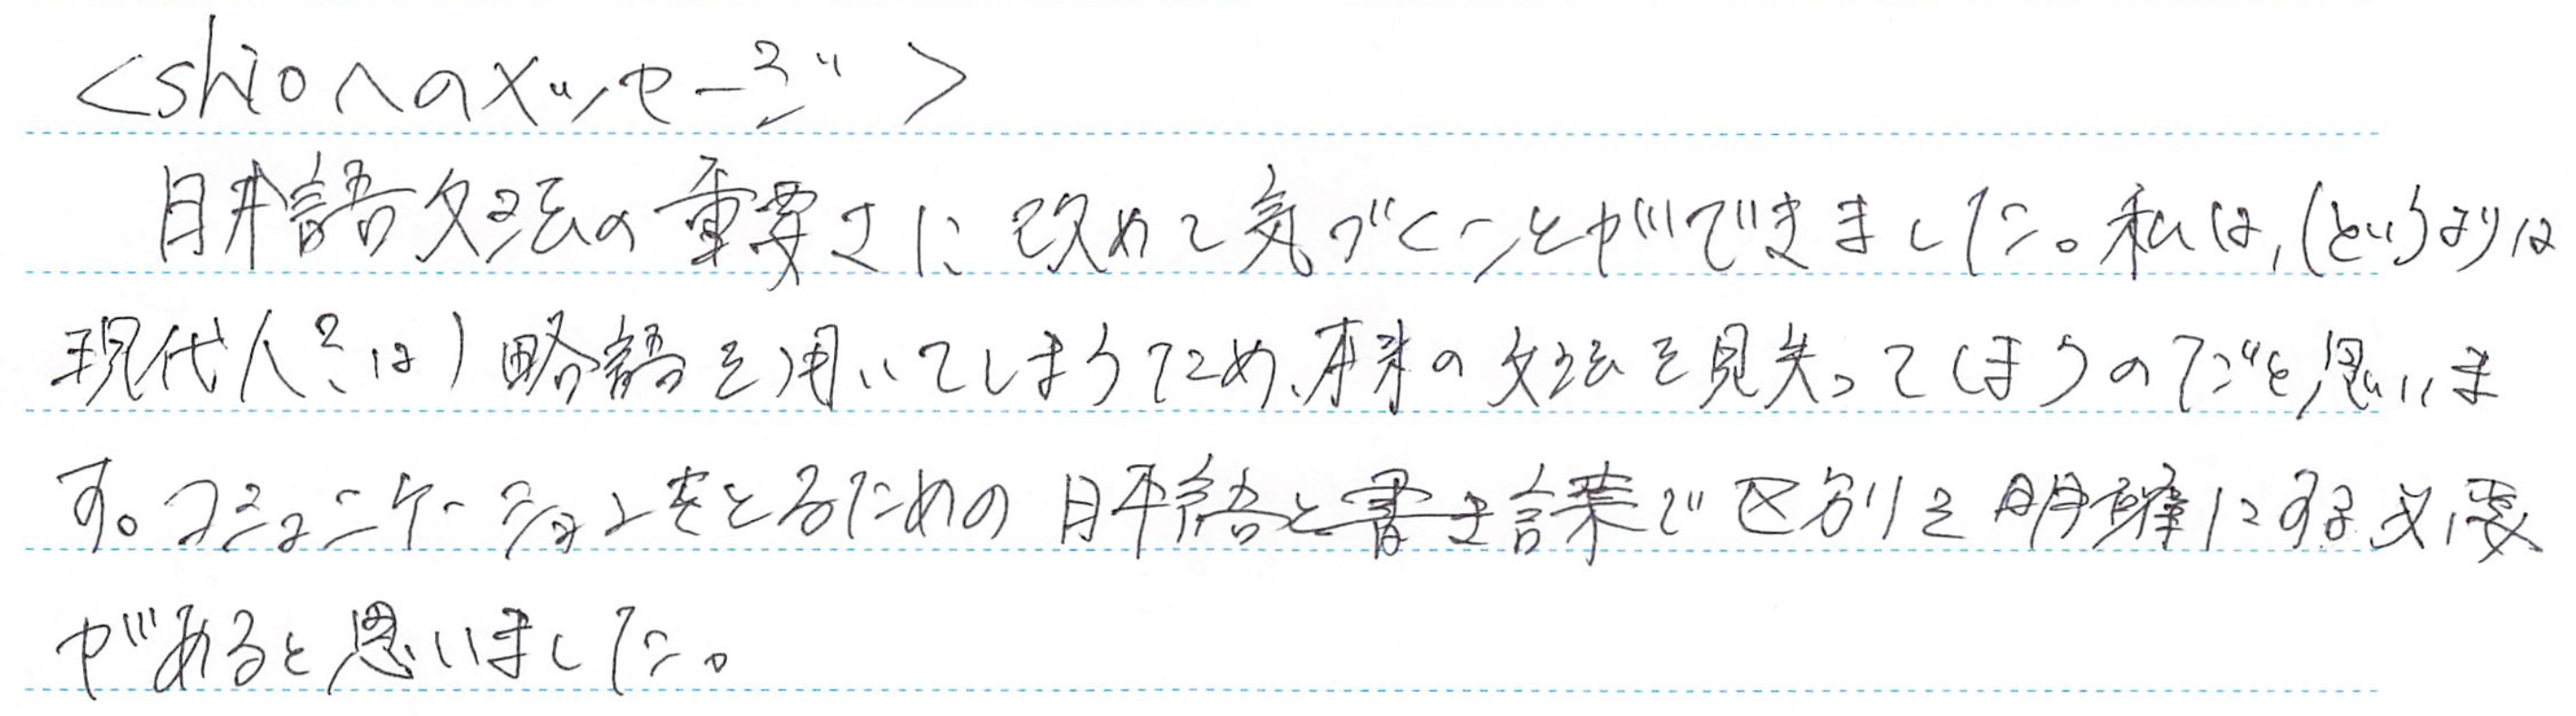 <shioへのメッセージ>
日本語文法の重要さに改めて気づくことができました。私は、(というよりは
現代人？は)略語を用いてしまうため、本来の文法を見失ってしまうのだと思いま
す。コミュニケーションをとるための日本語と書き言葉で区別を明確にする必要
があると思いました。